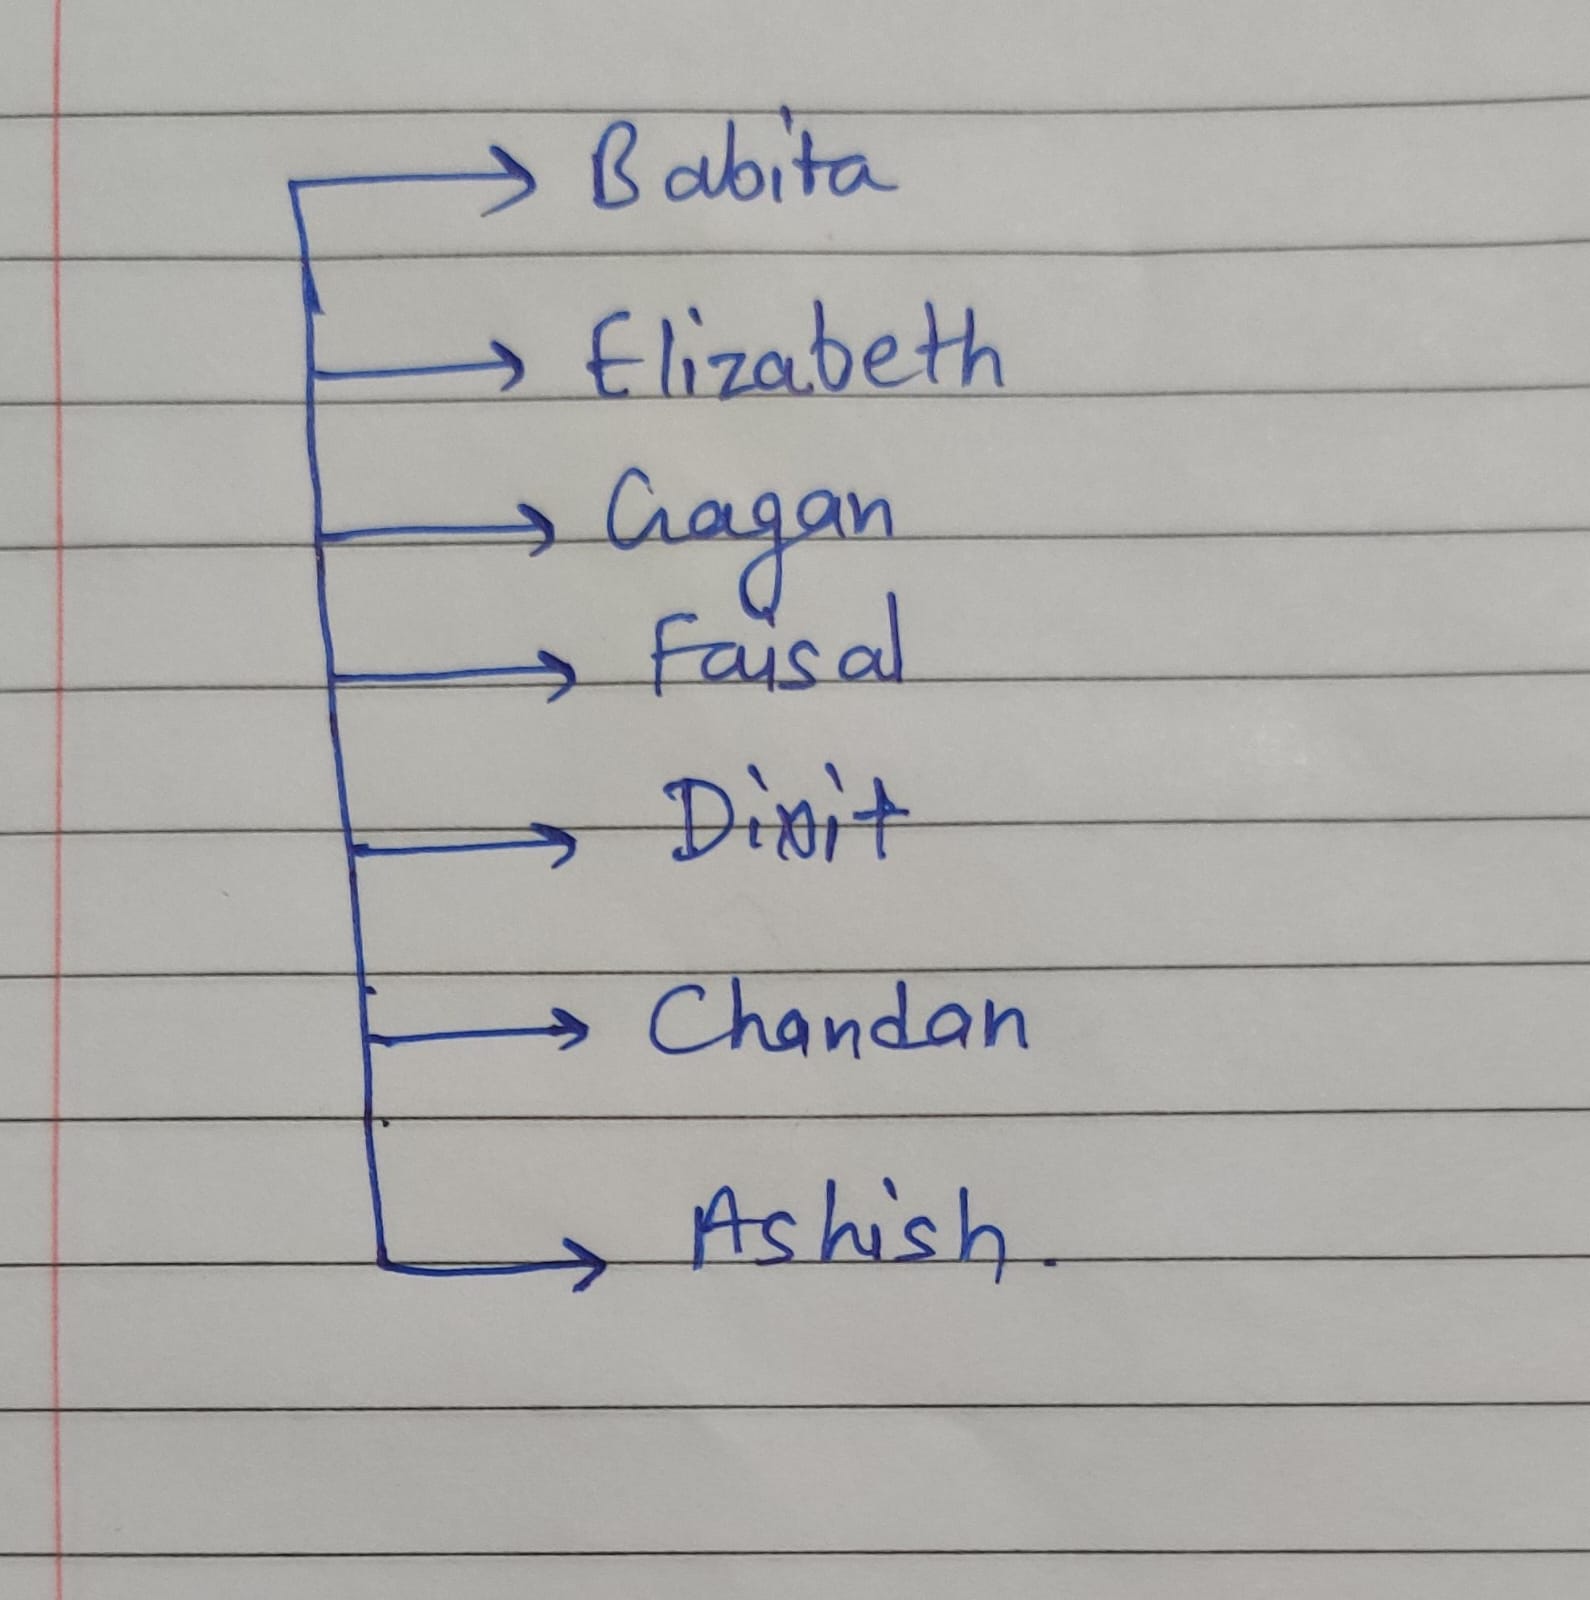 Babita
Elizabeth
Gagan
Faisal
Dixit
Chandan
Ashish.